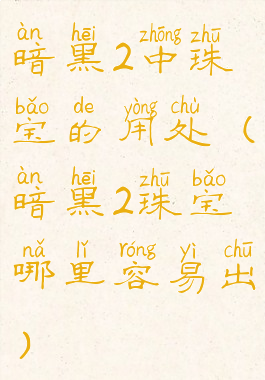 àn hēi zhōng zhū
暗黑2中珠
bǎo de yòng chù
宝的用处(
àn hēi zhū bǎo
暗黑2珠宝
nǎ lǐ róng yì chū
哪里容易出
)